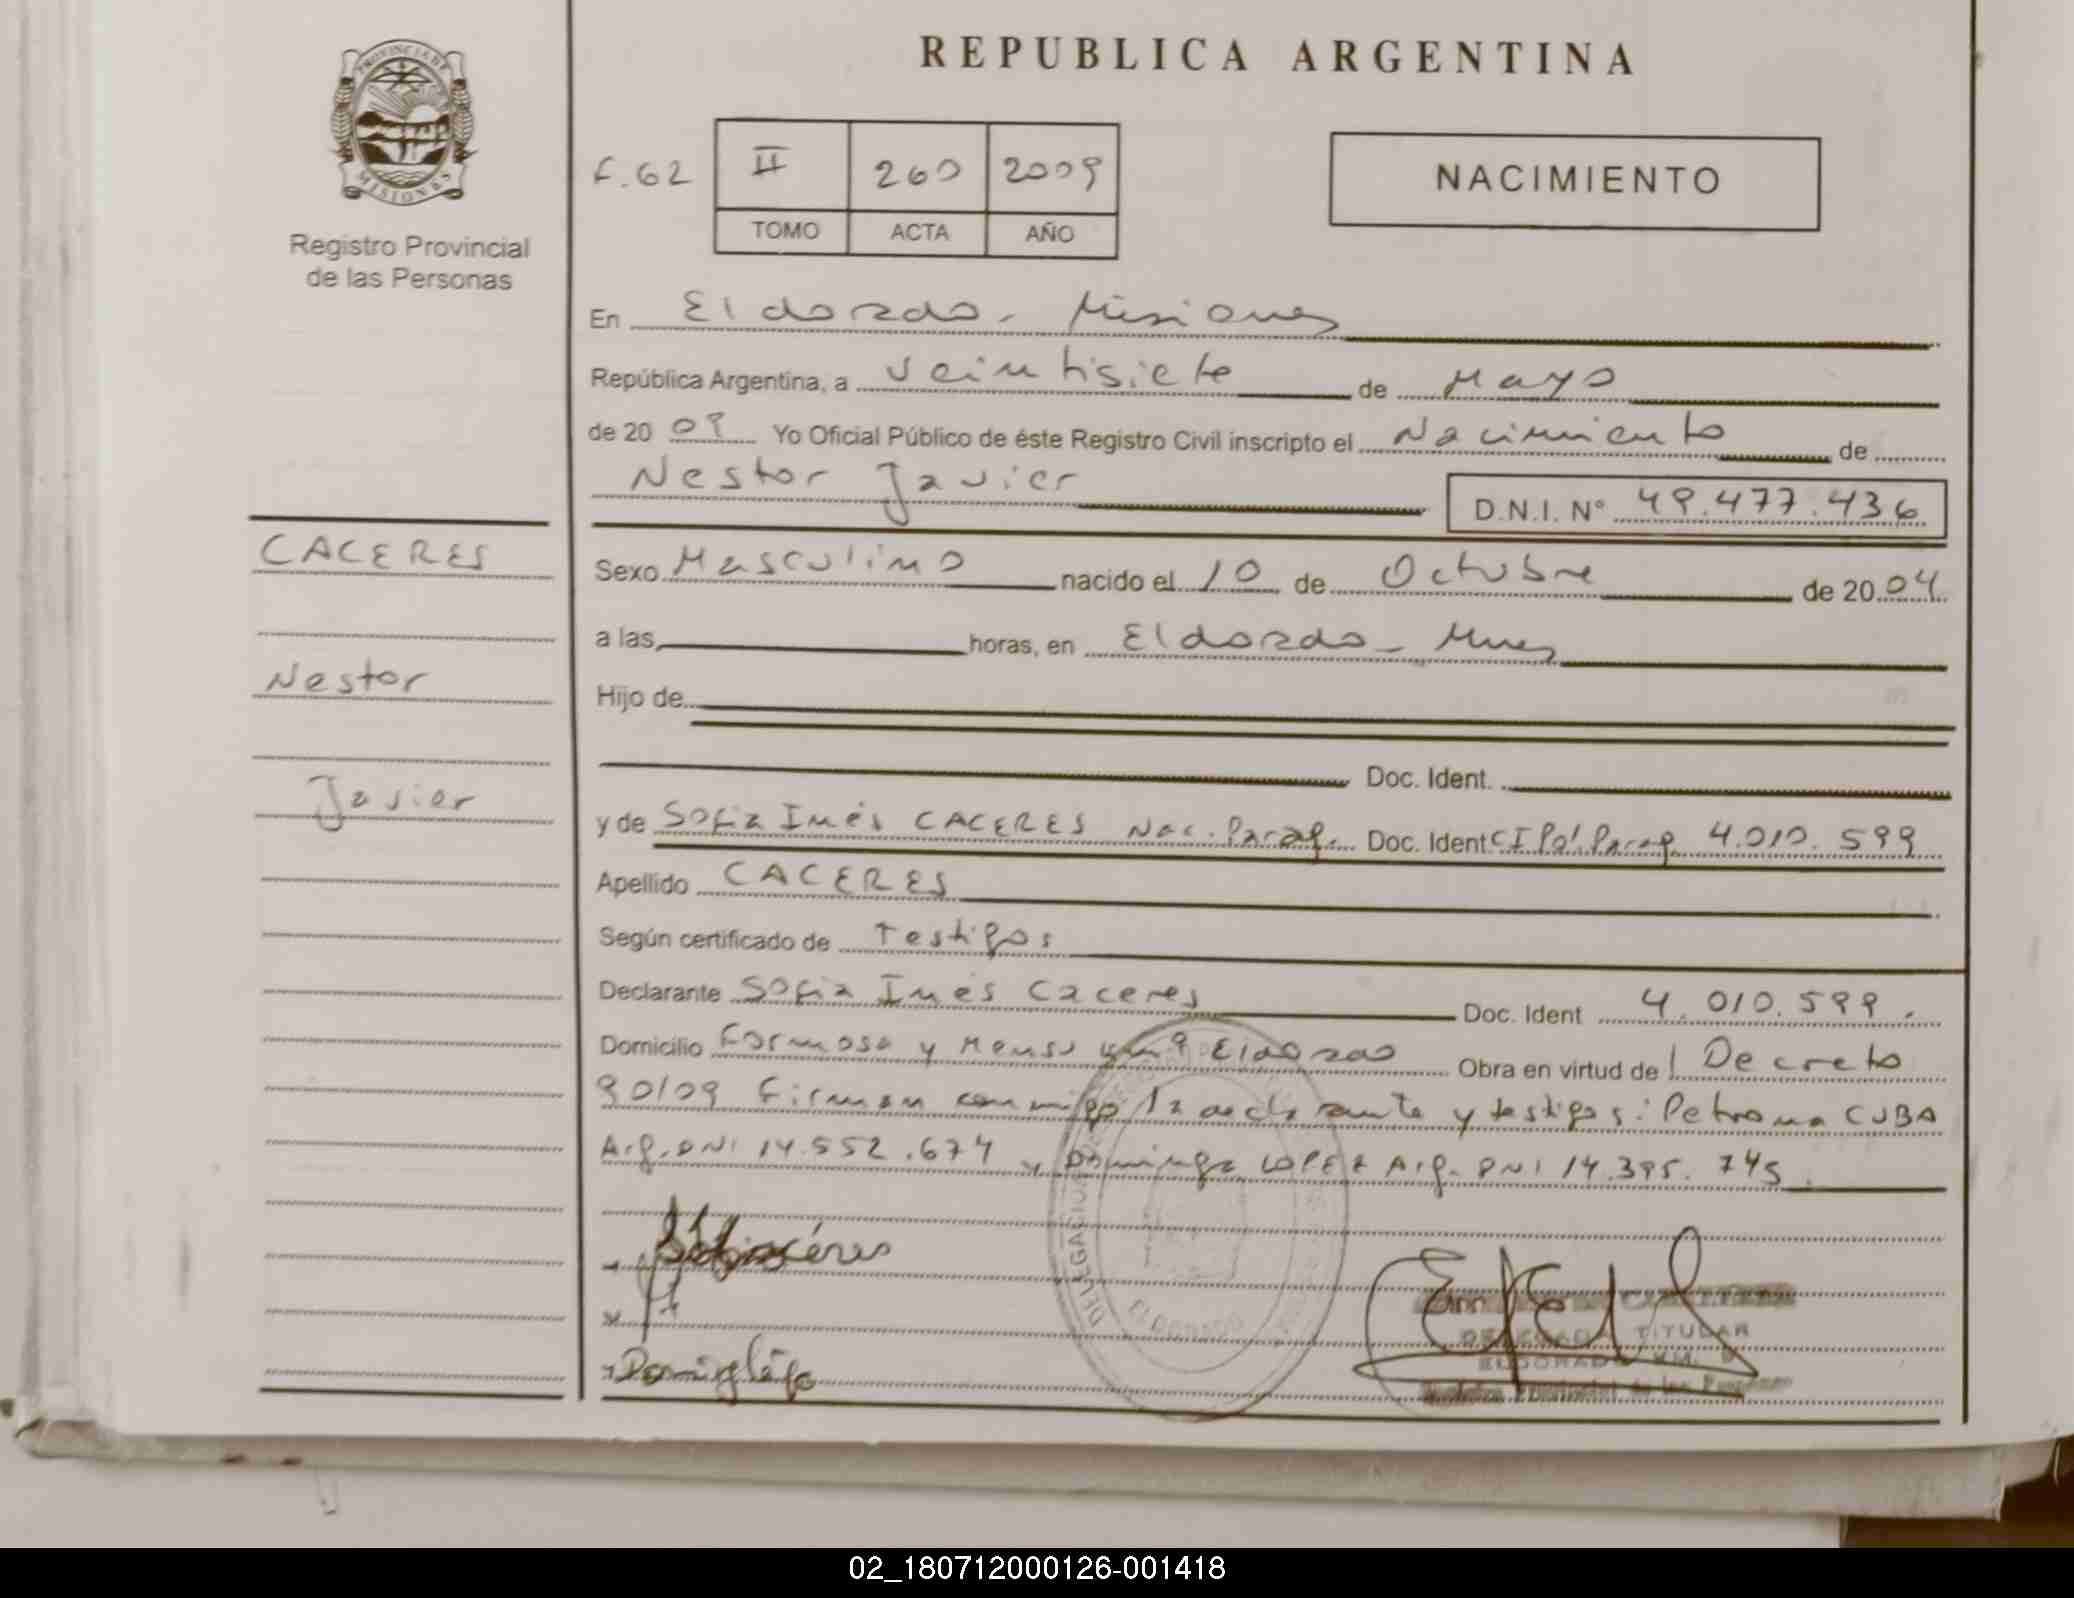 REPUBLICA ARGENTINA
PROVINCIA DE
MISIONES
Registro Provincial
de las Personas
F.62 II 260 2009
TOMO ACTA AÑO
NACIMIENTO
En Eldorado - Misiones
República Argentina, a veintisiete de Mayo
de 20 09 Yo Oficial Público de éste Registro Civil inscripto el Nacimiento de
Nestor Javier
D.N.I. Nº 49.477.436
CACERES
Nestor
Javier
Sexo Masculino nacido el 10 de Octubre de 20 04
a las horas, en Eldorado - Mnes
Hijo de
Doc. Ident.
y de Sofia Inés CACERES Nac. Parag. Doc. Ident CI Pol. Parag. 4.010.599
Apellido CACERES
Según certificado de Testigos
Declarante Sofia Inés Caceres Doc. Ident 4.010.599.
Domicilio Formosa y Mensu km 9 Eldorado Obra en virtud de Decreto
90/09 Firman conmigo la declarante y testigos: Petrona CUBA
Arg. DNI 14.552.674 y Dominga LOPEZ Arg. DNI 14.395.745
DELEGACION
ELDORADO
TITULAR
ELDORADO KM. 9
Registro Provincial de las Personas
02_180712000126-001418